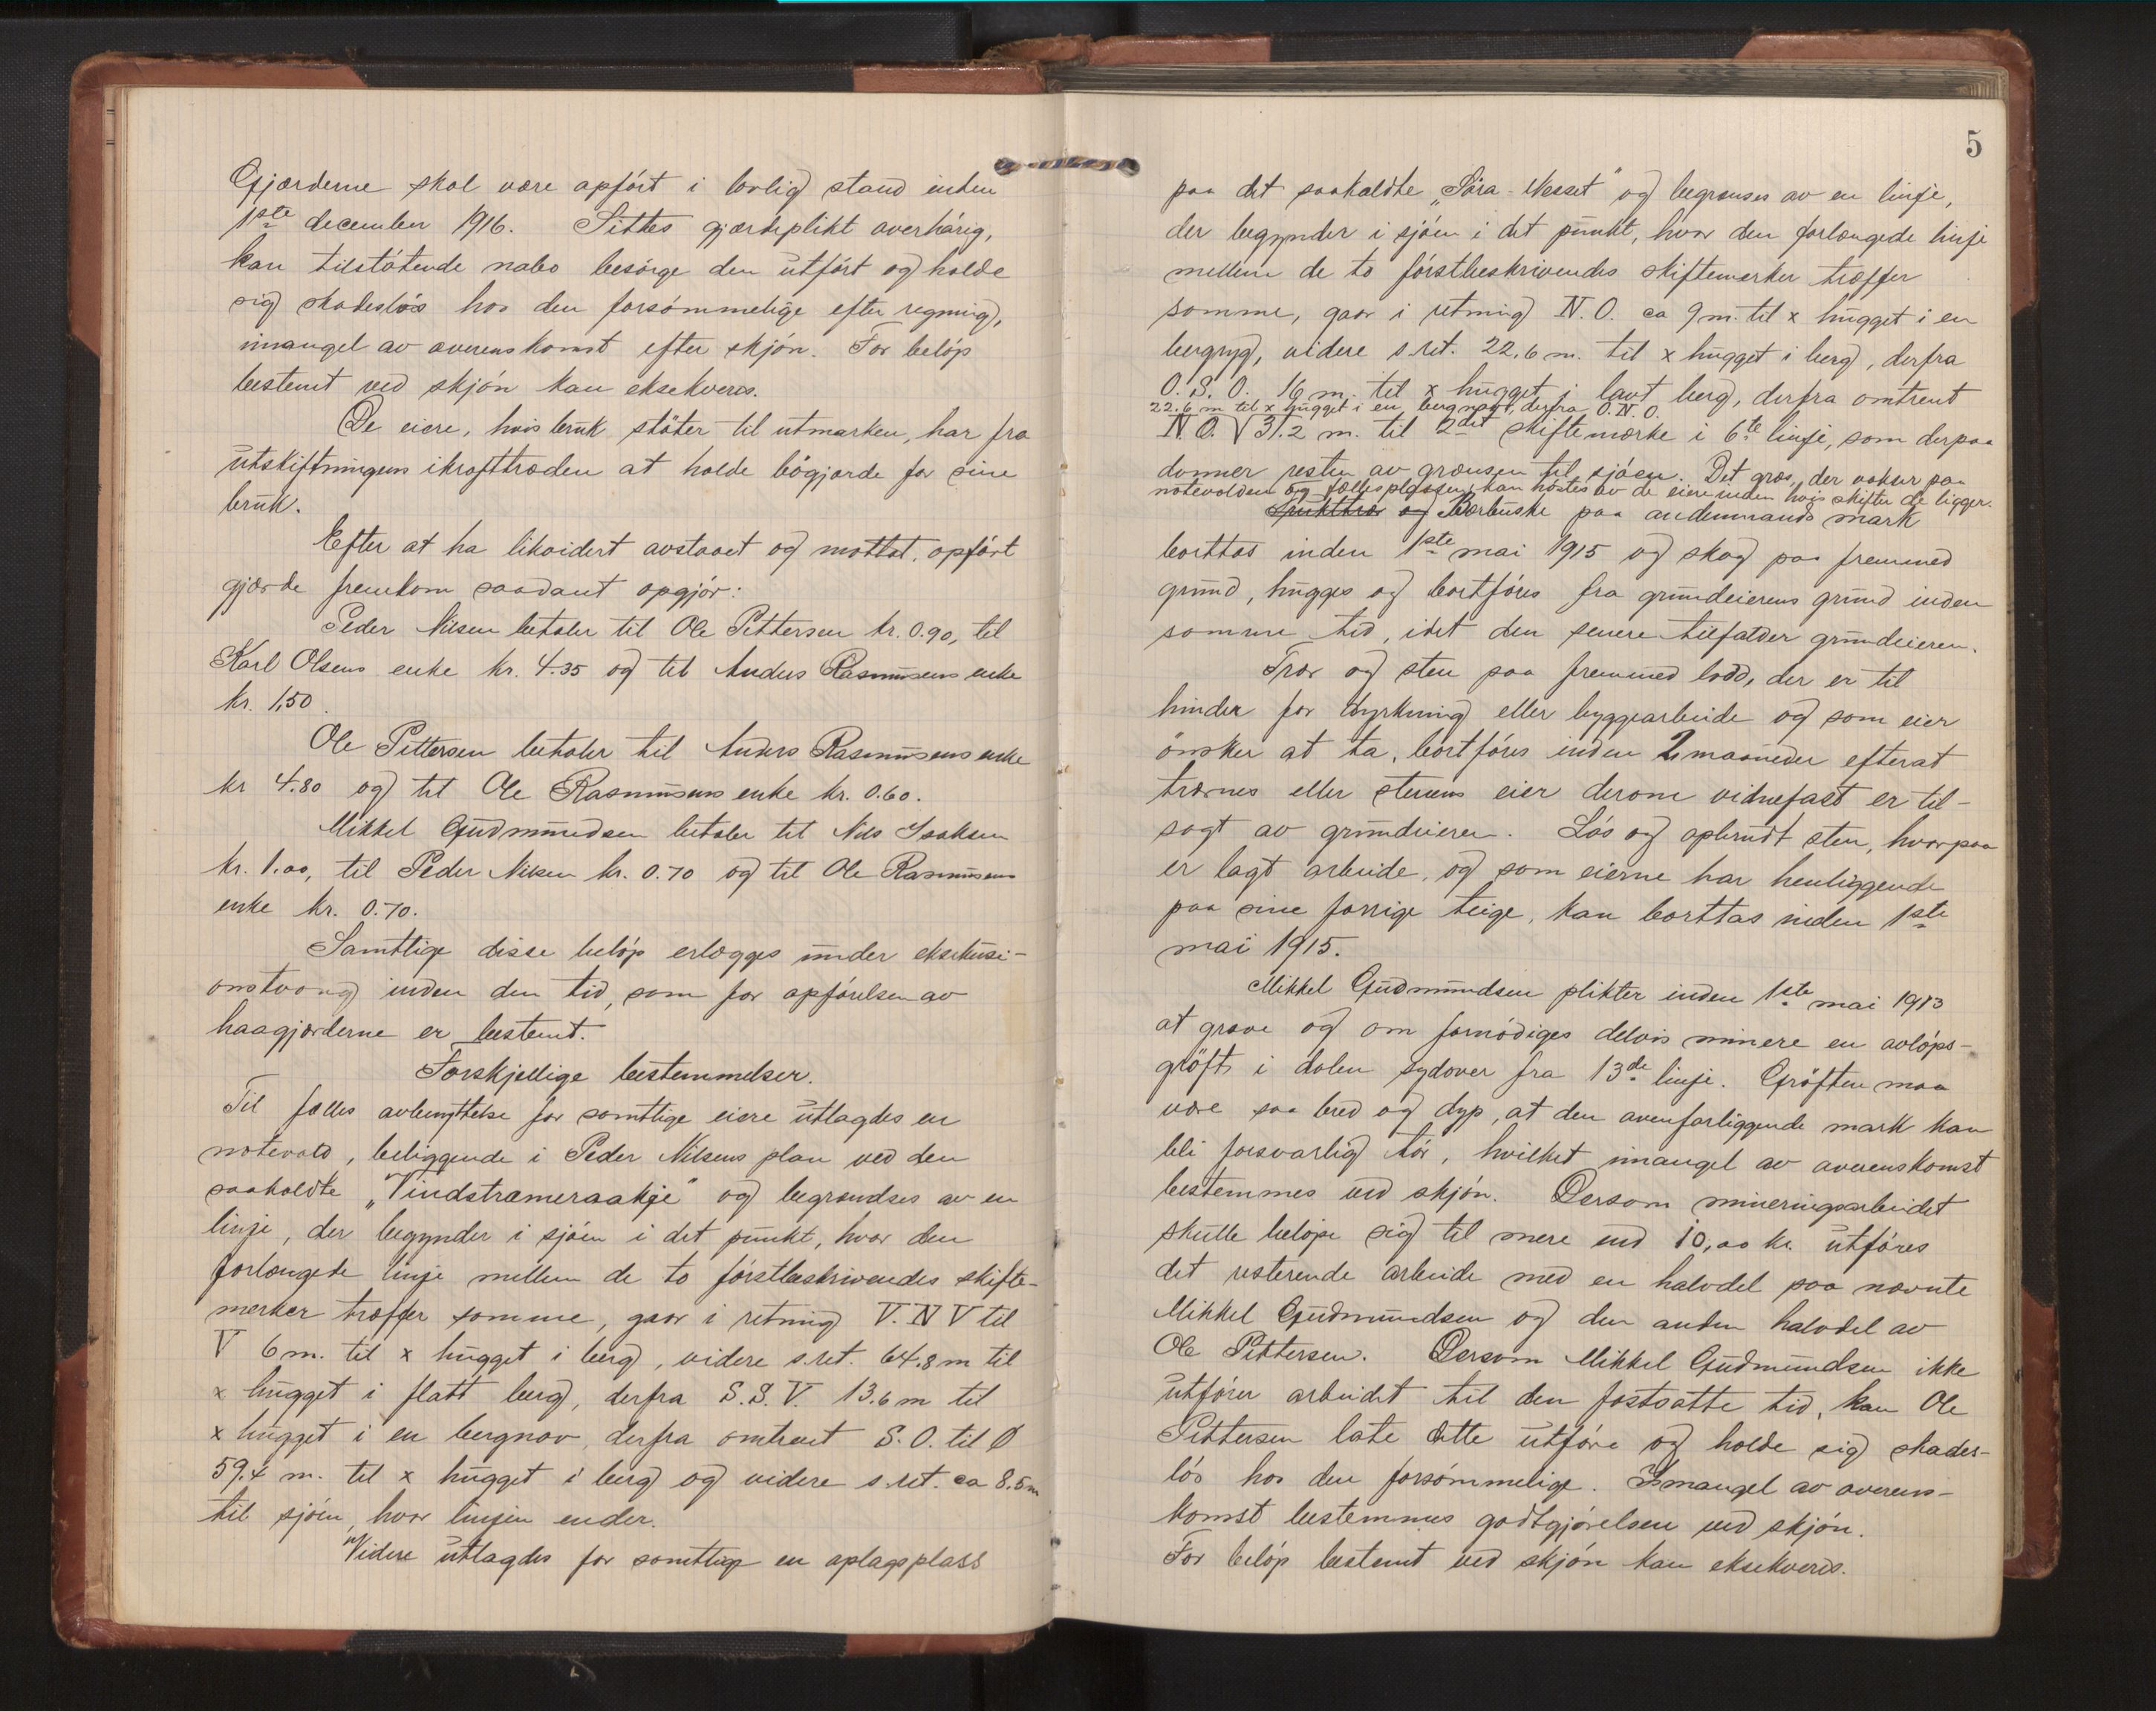 Gjærderne skal være opført i lovlig stand inden
1ste december 1916. Sittes gjærdeplikt overhørig,
kan tilstøtende nabo besørge den utført og holde
sig skadesløs hos den forsømmelige efter regning,
imangel av overenskomst efter skjøn. For beløp
bestemt ved skjøn kan eksekveres.
De eiere, hvis bruk støter til utmarken, har fra
utskiftningens ikrafttræden at holde bøgjærde for sine
bruk.
Efter at ha likvidert avstaaet og mottat, opført
gjærde fremkom saadant opgjør:
Peder Nilsen betaler til Ole Pettersen kr. 0.90, til
Karl Olsens enke kr. 4.35 og til Anders Rasmusens enke
kr. 1,50.
Ole Pettersen betaler til Anders Rasmusens enke
kr 4.80 og til Ole Rasmusens enke kr. 0.60.
Mikkel Gudmundsen betaler til Nils Isaksen
kr. 1.00, til Peder Nilsen kr. 0.70 og til Ole Rasmusens
enke kr. 0.70.
Samtlige disse beløp erlægges under eksekusi-
onstvang inden den tid, som for opførelsen av
haagjærderne er bestemt.
Forskjellige bestemmelser.
Til fælles avbenyttelse for samtlige eiere utlagdes en
notevold, beliggende i Peder Nilsens plan ved den
saakaldte „Vindstrameraakje" og begrændses av en
linje, der begynder i sjøen i det punkt, hvor den
forlængede linje mellem de to førstbeskrivendes skifte-
merker træffer samme, gaar i retning V. N V til
V 6 m. til x hugget i berg, videre s. ret. 64.8 m til
x hugget i flatt berg, derfra S. S. V. 13.6 m til
x hugget i en bergnov, derfra omtrent S. O. til O
59.4 m. til x hugget i berg og videre s. ret. ca 8.5 m
til sjøen, hvor linjen ender.
Videre utlagdes for samtlige en oplagsplass
5
paa det saakaldte „Såra-Nesset" og begrænses av en linje,
der begynder i sjøen i det punkt, hvor den forlængede linje
mellem de to førstbeskrivendes skiftemerker træffer
samme, gaar i retning N. O. ca 9 m. til x hugget i en
bergryg, videre s. ret. 22.6 m. til x hugget i berg, derfra
O. S. O. 16 m. til x hugget i lavt berg, derfra omtrent
22.6 m til x hugget i en bergnov, derfra O. N. O.
N. O. V 31.2 m. til 2det skiftemærke i 6te linje, som derpaa
danner resten av grænsen til sjøen. Det græs, der vokser paa
notevolden og fællesplassen, kan høstes av de eiere inden hvis skifter de ligger.
Frukttrær og Bærbuske paa andenmands mark
borttas inden 1ste mai 1915 og skog paa fremmed
grund, hugges og bortføres fra grundeierens grund inden
samme tid, idet den senere tilfalder grundeieren.
Trær og sten paa fremmed lodd, der er til
hinder for dyrkning eller byggearbeide og som eier
ønsker at ta, bortføres inden 2 maaneder efterat
trærnes eller stenens eier derom vidnefast er til-
sagt av grundeieren. Løs og opbrudt sten, hvorpaa
er lagt arbeide, og som eierne har henliggende
paa sine forrige teige, kan borttas inden 1ste
mai 1915.
Mikkel Gudmundsen plikter inden 1ste mai 1913
at grave og om fornødiges delvis minere en avløps-
grøft i dalen sydover fra 13de linje. Grøften maa
være saa bred og dyp, at den ovenforliggende mark kan
bli forsvarlig tør, hvilket imangel av overenskomst
bestemmes ved skjøn. Dersom mineringsarbeidet
skulle beløpe sig til mere end 10,00 kr. utføres
det resterende arbeide med en halvdel paa nævnte
Mikkel Gudmundsen og den anden halvdel av
Ole Pettersen. Dersom Mikkel Gudmundsen ikke
utfører arbeidet til den fastsatte tid, kan Ole
Pettersen late dette utføre og holde sig skades-
løs hos den forsømmelige. Imangel av overens-
komst bestemmes godtgjørelsen ved skjøn.
For beløp bestemt ved skjøn kan eksekveres.